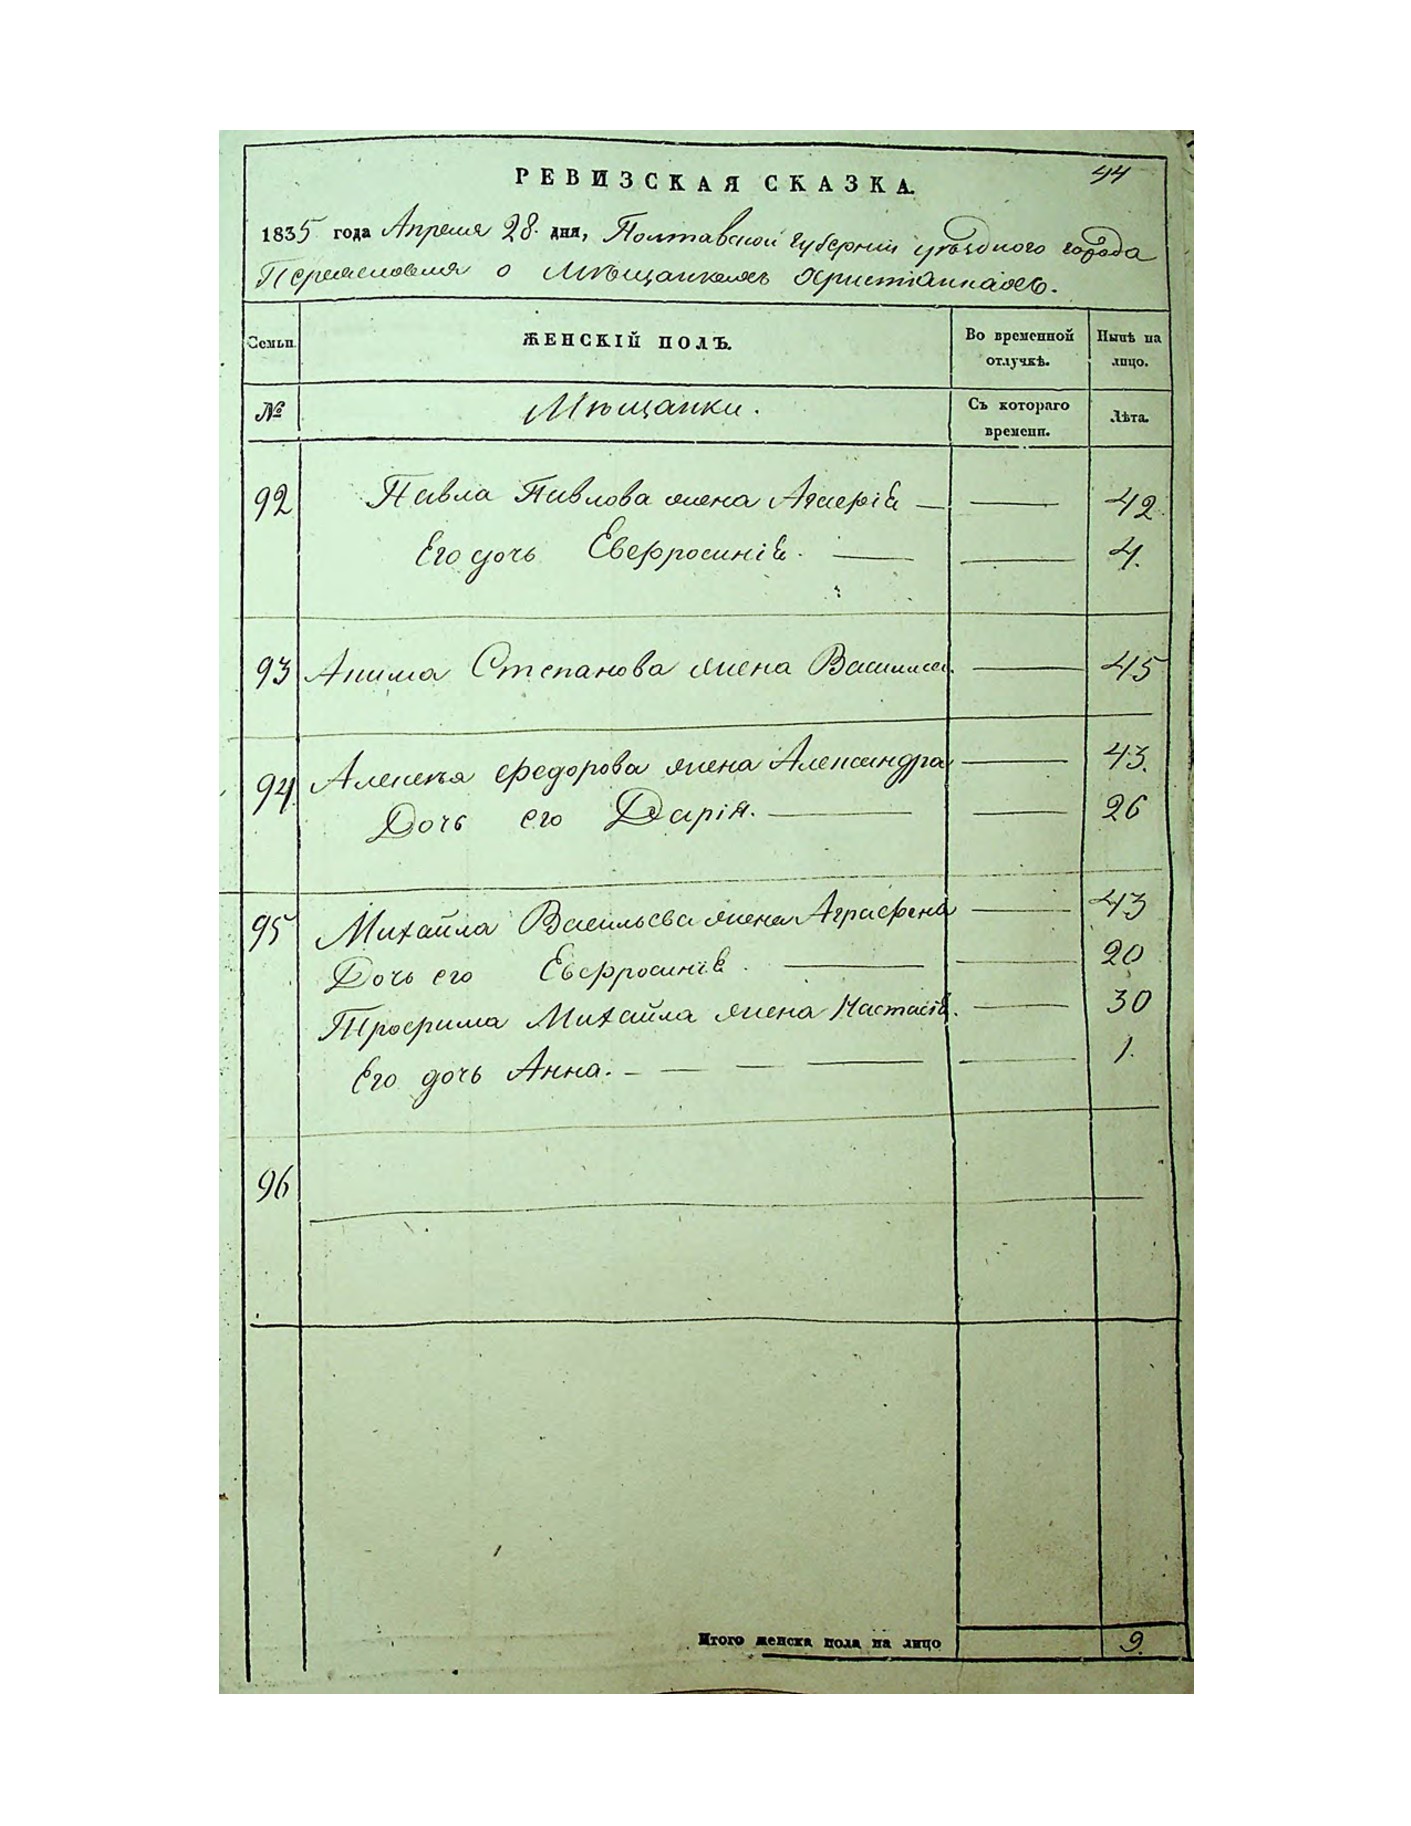 44
РЕВИЗСКАЯ СКАЗКА.
1835 года Апреля 28. дня, Полтавской губернии уѣзднаго города
Переяславля о Мѣщанкахъ христіанкахъ.
Семьи. ЖЕНСКІЙ ПОЛЪ. Во временной отлучкѣ. Нынѣ на лицо.
№ Мѣщанки. Съ котораго времени. Лѣта.
92 Павла Павлова жена — — 42
Его дочь Евфросинія. — — 4.
93 Акима Степанова жена Василиса. — 45
94. Алексѣя Федорова жена Александра — 43.
Дочь его Дарія. — — 26
95 Михайла Васильева жена Аграфена — 43
Дочь его Евфросинія. — — 20
Трофима Михайла жена Настасія. — 30
Его дочь Анна. — — — — — 1.
96
Итого женска пола на лицо 9.